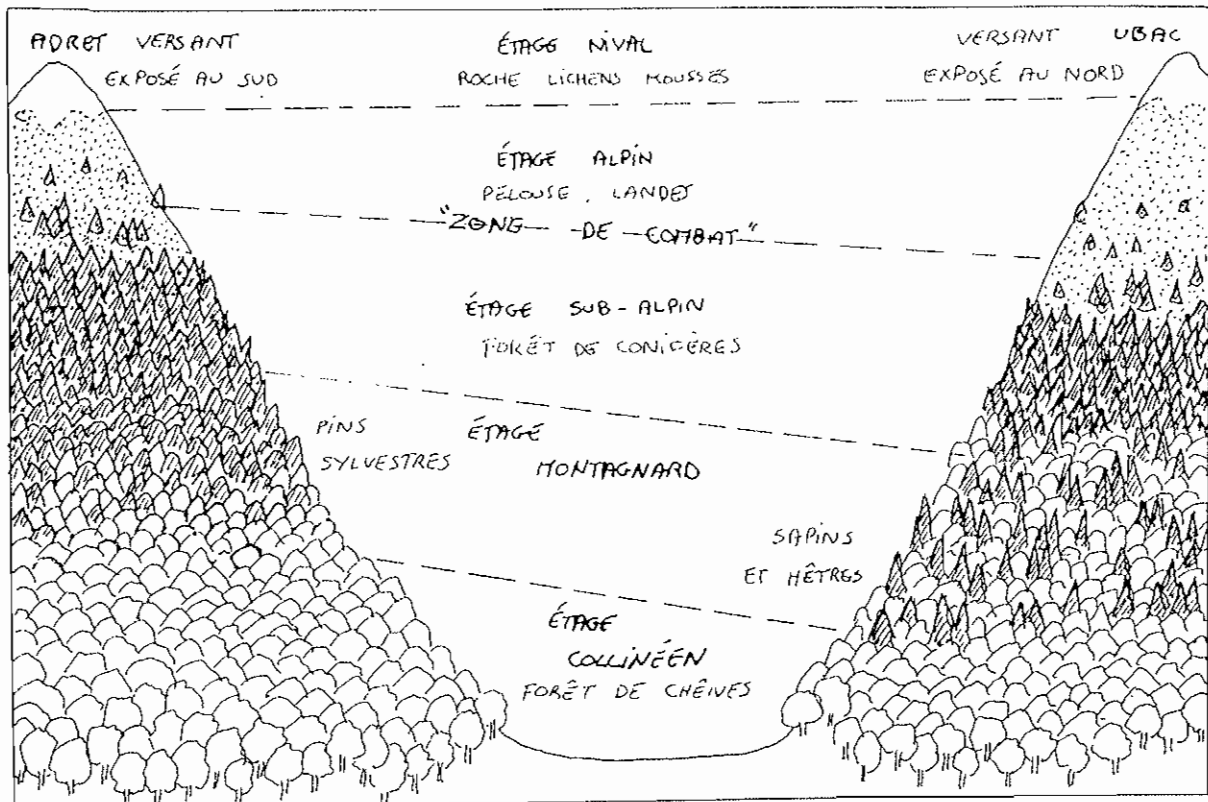 ADRET VERSANT
EXPOSÉ AU SUD
ÉTAGE NIVAL
ROCHE LICHENS MOUSSES
VERSANT UBAC
EXPOSÉ AU NORD
ÉTAGE ALPIN
PELOUSE, LANDES
"ZONE DE COMBAT"
ÉTAGE SUB-ALPIN
FORÊT DE CONIFÈRES
PINS
SYLVESTRES
ÉTAGE
MONTAGNARD
SAPINS
ET HÊTRES
ÉTAGE
COLLINÉEN
FORÊT DE CHÊNES